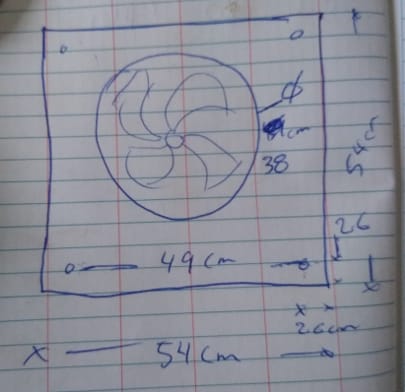 ϕ
cm
38
54
26
49 cm
26cm
x 54 cm